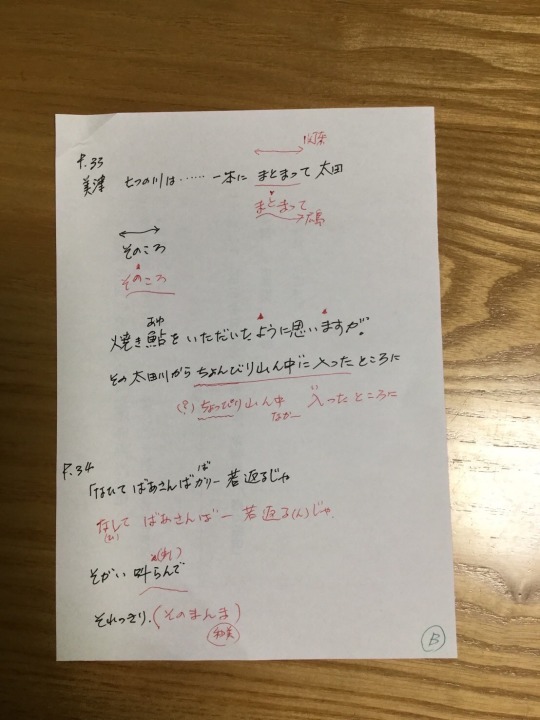 関東
P.33
美津 七つの川は……一本に まとまって 太田
まとまって
広島
そのころ
そのころ
あゆ
焼き鮎を いただいたように思いますが。
その太田川から ちょんびり山ん中に 入った ところに
(?) ちょっぴり山ん中 に 入った ところに
なかー
P.34
ば
「なひて ばあさんばがりー 若返るじゃ
なして ばあさんばー 若返る(ん)じゃ。
(ひ)
そがい 叫らんで
それっきり.(そのまんま)
和美
B